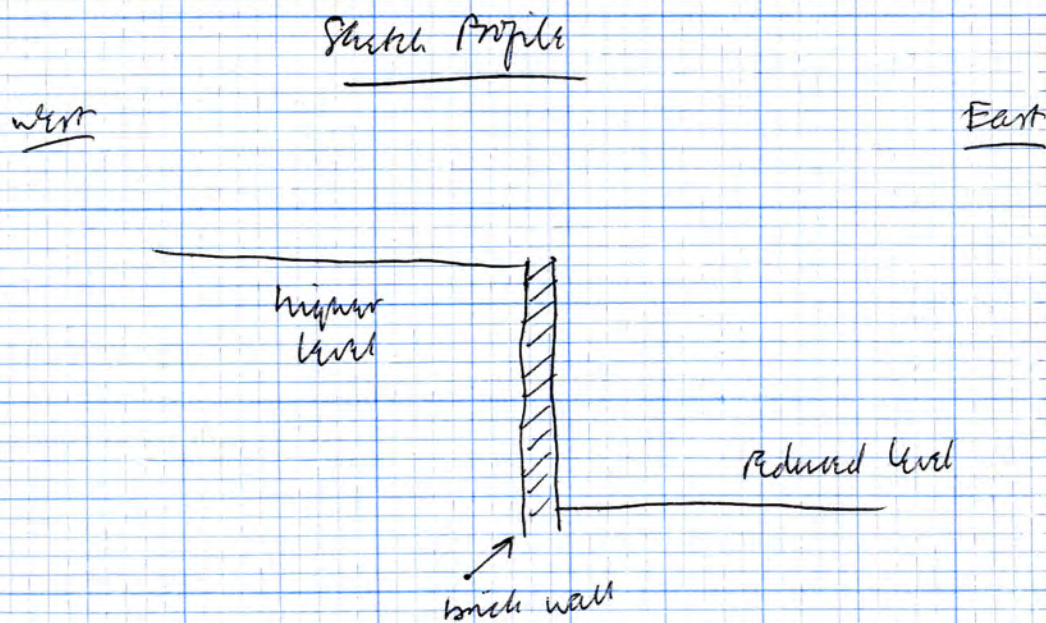 Sketch Profile
West
East
higher
level
reduced level
brick wall